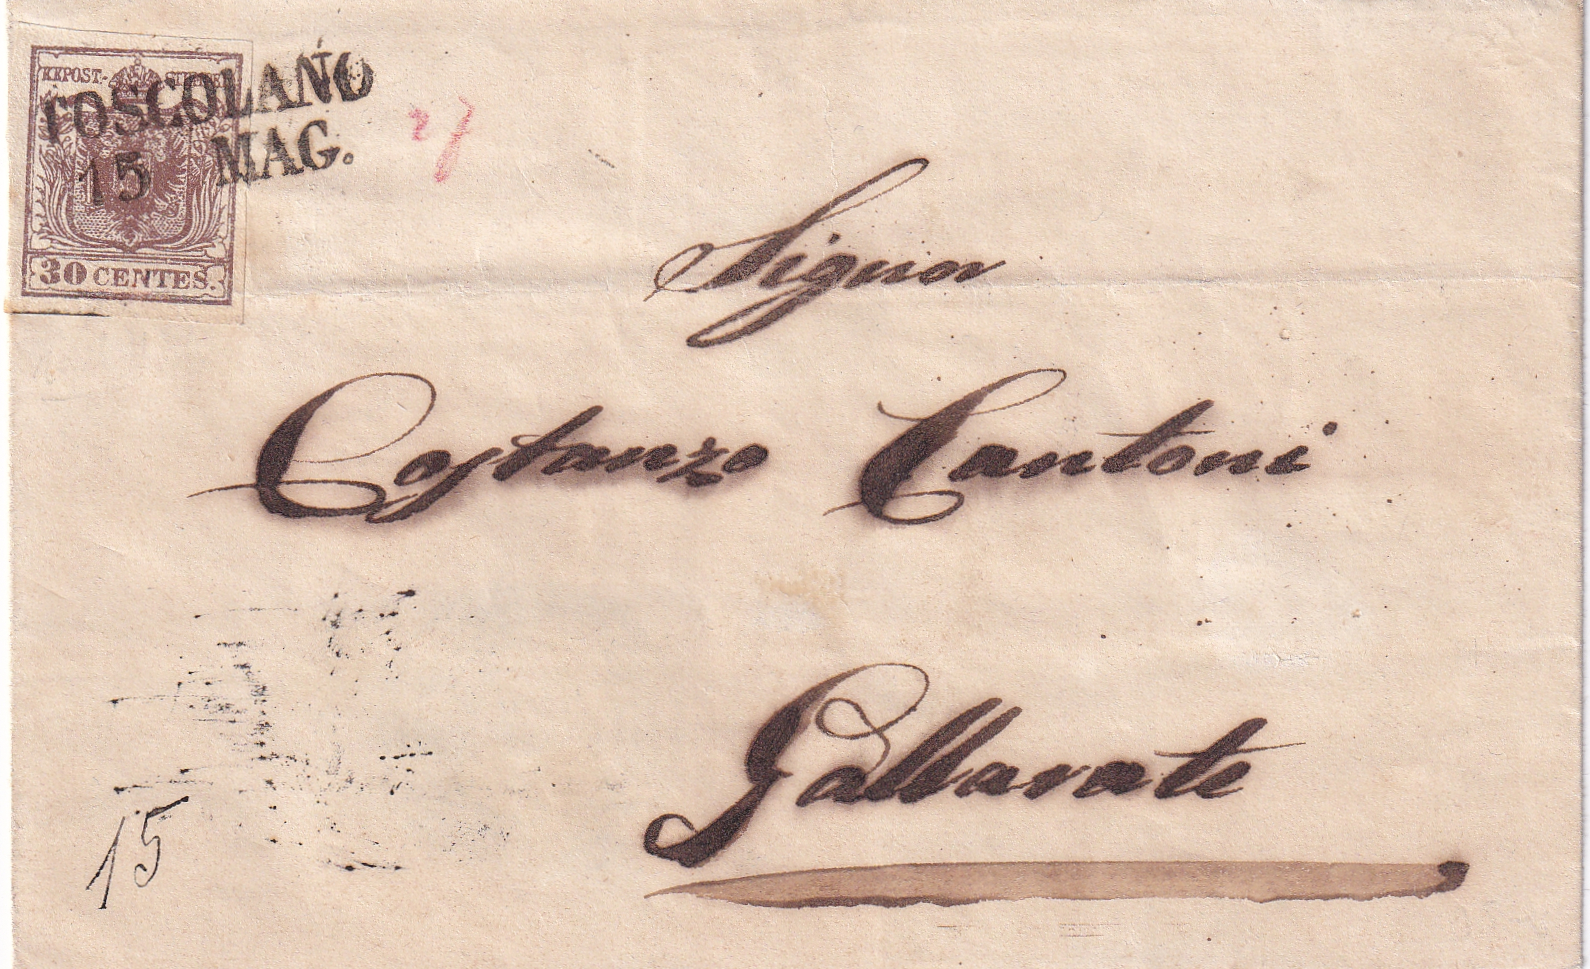 KKPOST-STEMPEL
TOSCOLANO
15 MAG.
30 CENTES.
Signor
Costanzo Cantoni
Gallarate
15